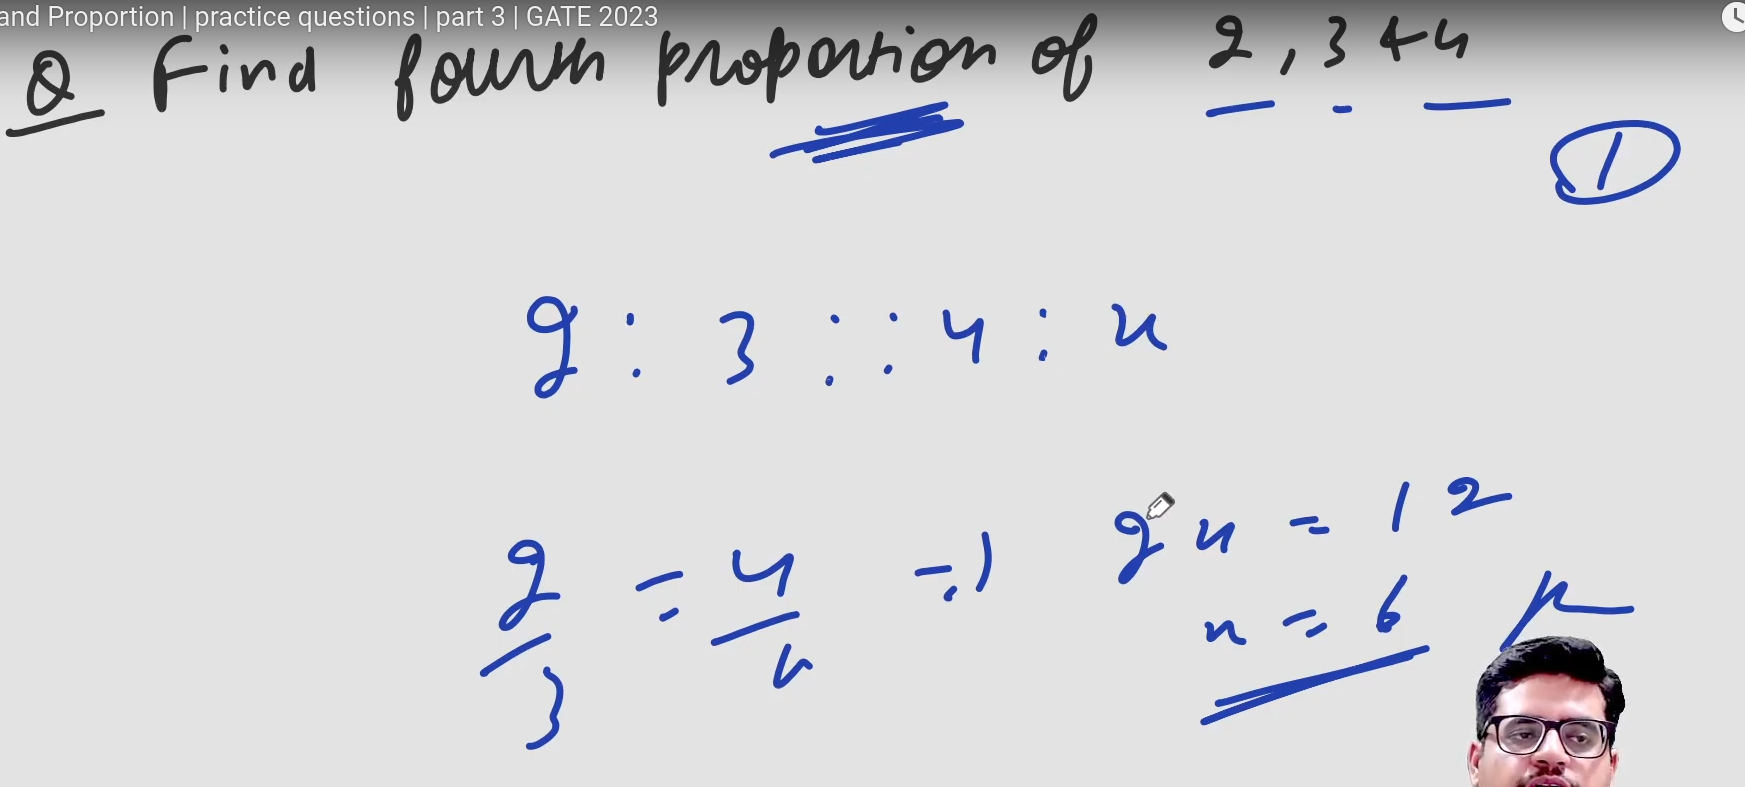 and Proportion | practice questions | part 3 | GATE 2023
Q Find fourth proportion of 2, 3 & 4
1
2 : 3 :: 4 : x
2/3 = 4/x => 2x = 12
x = 6